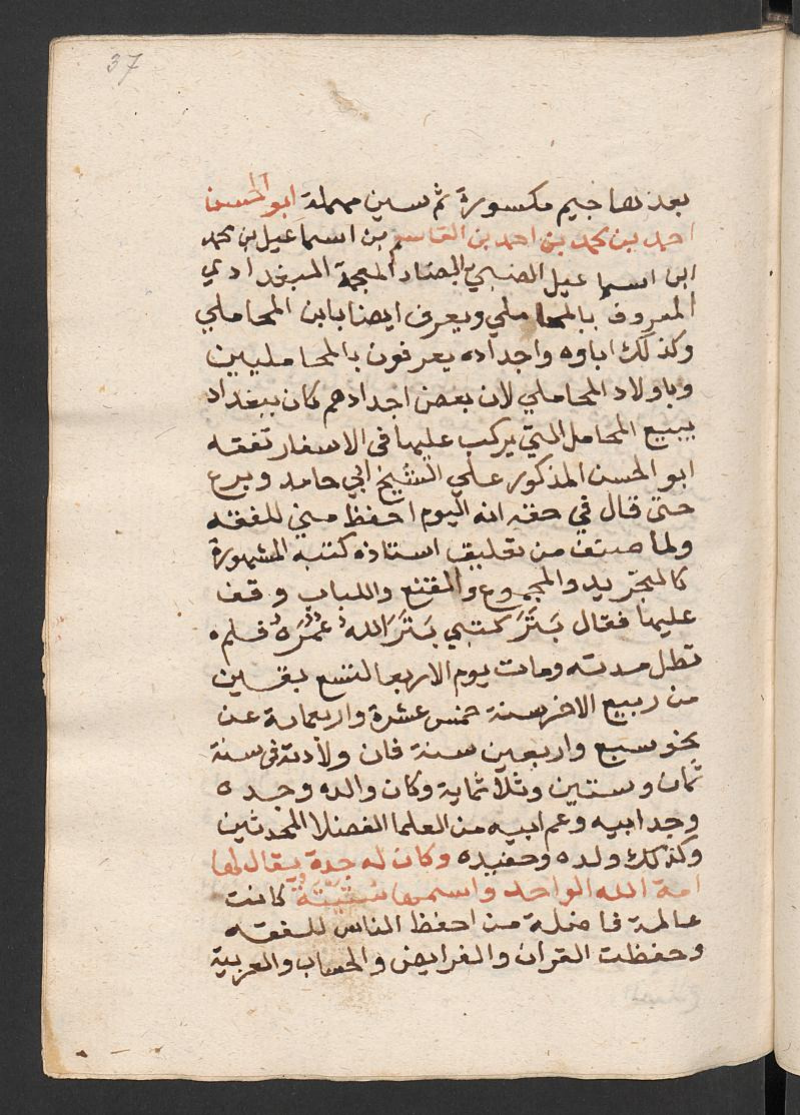 37
بعدها جيم مكسورة ثم سين مهملة ابو الحسن
احمد بن محمد بن احمد بن القاسم بن اسماعيل بن محمد
ابن اسماعيل الضبي بالضاد المعجمة البغدادي
المعروف بالمحاملي ويعرف ايضا بابن المحاملي
وكذلك اباوه واجداده يعرفون بالمحامليين
وباولاد المحاملي لان بعض اجدادهم كان ببغداد
يبيع المحامل التي يركب عليها في الاسفار تفقه
ابو الحسن المذكور علي الشيخ ابي حامد وبرع
حتى قال في حقه انه اليوم احفظ مني للفقه
ولما صنف من تعليق استاذه كتبه المشهورة
كالتجريد والمجموع والمقنع واللباب وقف
عليها فقال بَتَرَ كتبي بَتَرَ اللهُ عُمُرَهُ فلم
تطل مدته ومات يوم الاربعا لتسع بقين
من ربيع الاخر سنة خمس عشرة واربعماية عن
نحو سبع واربعين سنة فان ولادته في سنة
ثمان وستين وثلاثماية وكان والده وجده
وجد ابيه وعم ابيه من العلما الفضلا المحدثين
وكذلك ولده وحفيده وكان له جدة يقال لها
امة الله الواحد واسمها سُتَيْتَةُ كانت
عالمة فاضلة من احفظ الناس للفقه
وحفظت القران والفرايض والحساب والعربية